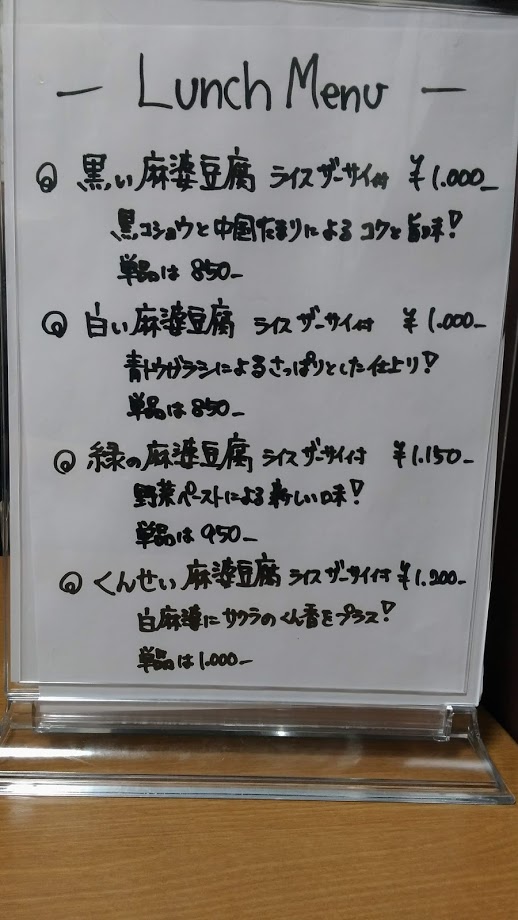 — Lunch Menu —
◎ 黒い麻婆豆腐 ライス ザーサイ付 ¥1.000-
黒コショウと中国たまりによる コクと旨味!
単品は 850-
◎ 白い麻婆豆腐 ライス ザーサイ付 ¥1.000-
青トウガラシによるさっぱりとした仕上り!
単品は 850-
◎ 緑の麻婆豆腐 ライス ザーサイ付 ¥1.150-
野菜ペーストによる新しい味!
単品は 950-
◎ くんせい 麻婆豆腐 ライス ザーサイ付 ¥1.200-
白麻婆に サクラのくん香をプラス!
単品は 1.000-